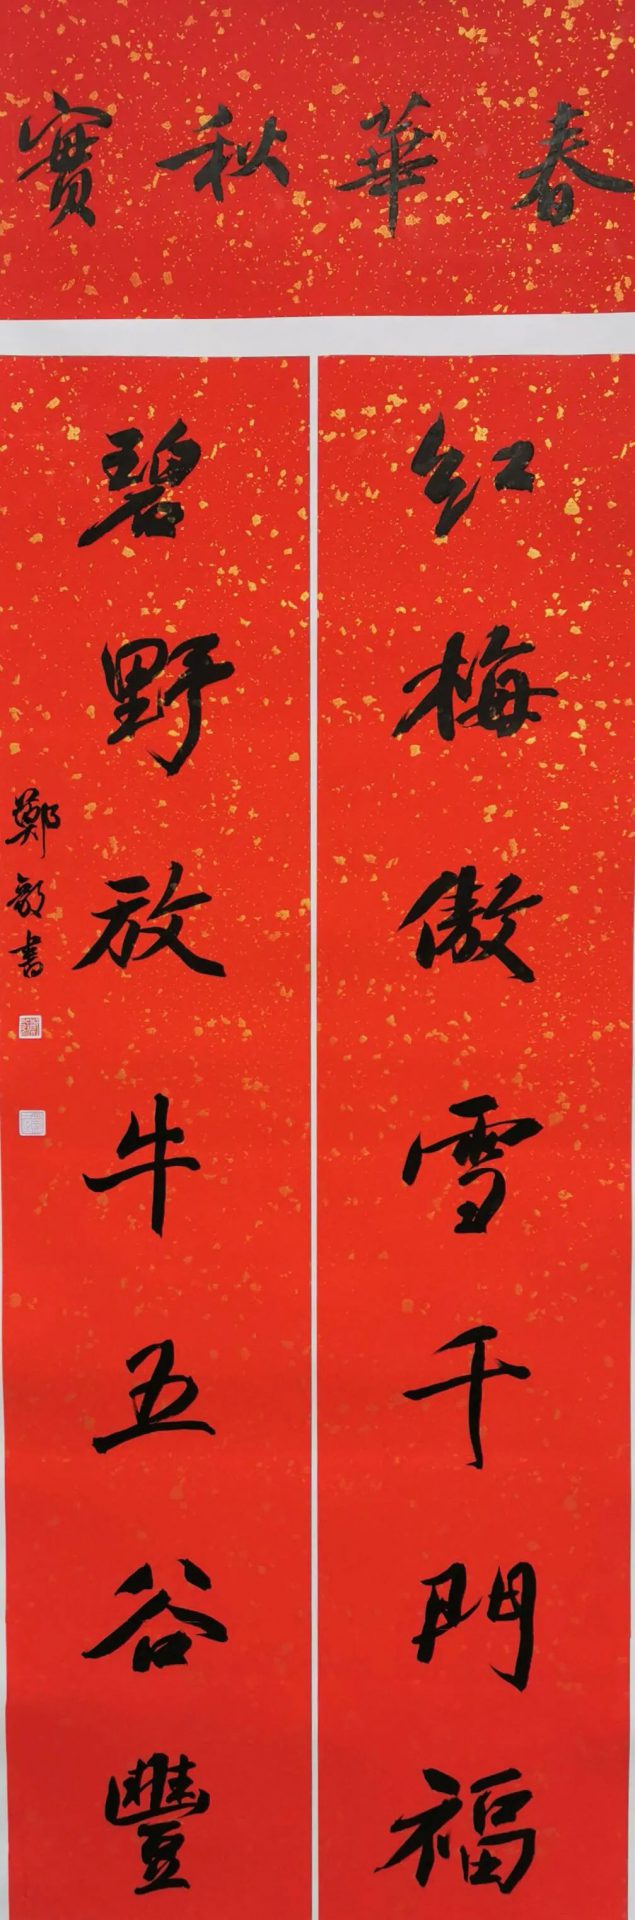 春華秋實
红梅傲雪千門福
碧野放牛五谷豐
鄭敏書